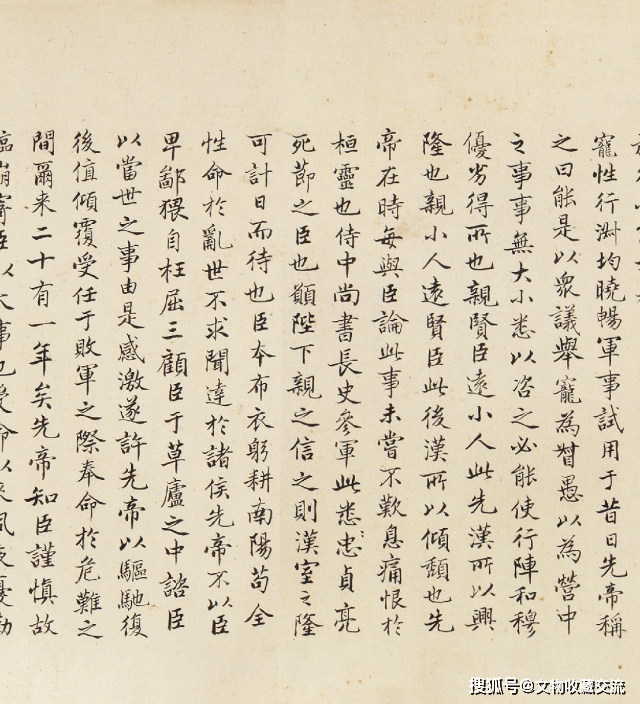 寵性行淑均曉暢軍事試用于昔日先帝稱
之曰能是以衆議舉寵為督愚以為營中
之事事無大小悉以咨之必能使行陣和穆
優劣得所也親賢臣遠小人此先漢所以興
隆也親小人遠賢臣此後漢所以傾頹也先
帝在時每與臣論此事未嘗不歎息痛恨於
桓靈也侍中尚書長史參軍此悉忠貞亮
死莭之臣也願陛下親之信之則漢室之隆
可計日而待也臣本布衣躬耕南陽苟全
性命於亂世不求聞達於諸侯先帝不以臣
卑鄙猥自枉屈三顧臣于草廬之中諮臣
以當世之事由是感激遂許先帝以驅馳復
後值傾覆受任于敗軍之際奉命於危難之
間爾来二十有一年矣先帝知臣謹慎故
臨崩寄臣以大事也受命以来夙夜憂勤
搜狐号@文物收藏交流